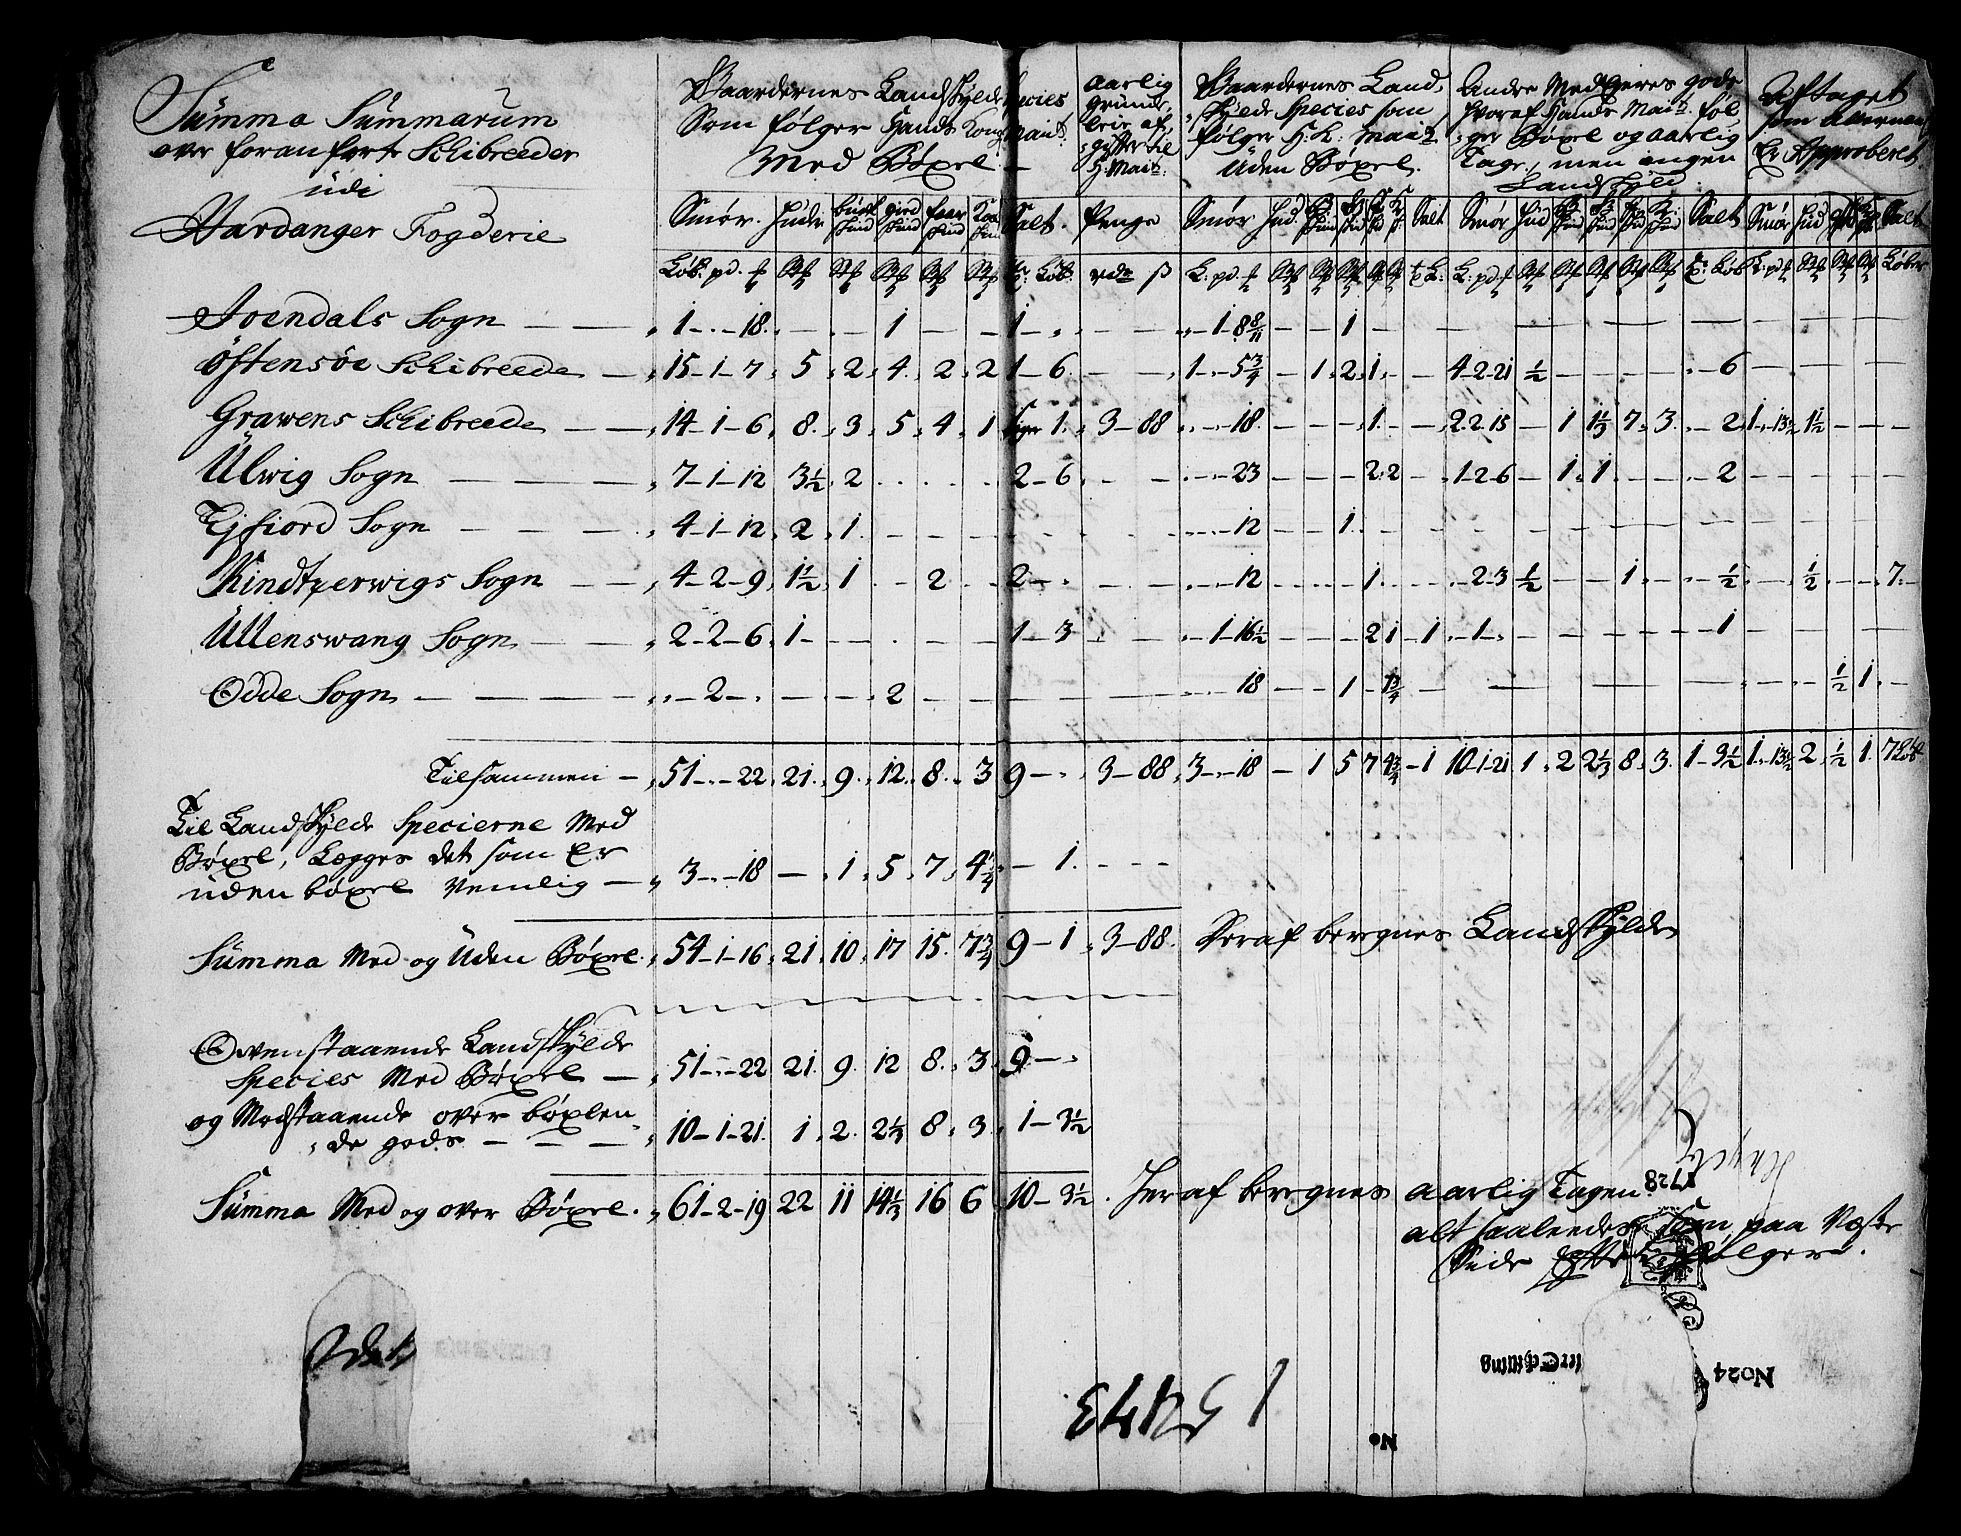 Summa Summarum
over foranførte Schibreeder
udi
Hardanger Fogderie
Gaardernes Landskylds Species
Som følger Hands Kong Mait:
Med Bøxel
Aarlig
grunde
leie af
gifter til
H: Mait:
Gaardernes Land,
skylds Species som
følger H: K: Mait:
Uden Bøxel.
Andre Medeyeres gods
hvoraf Hands Mait: føl
ger Bøxel og aarlig
Tage, men ingen
Landskyld
Aftaget
som Allernaa
Er Approberet
Smør. Huder Salt. Penge Smør Hud. Salt Smør Hud Salt Smør Hud Salt
Joendals Sogn — 1 — 18. 1 1 1 - 8 8/11 1
Østensøe Schibreede — 15 - 1 - 7 5 2 4 2 2 1 - 6 1 - 5 3/4 1 2 1 4 - 2 - 21 1/2 6
Grawens Schibreede — 14 - 1 - 6 8 3 5 4 1 1. 3 - 88 18 1 2. 2 15 1 1 1/3 7 3 2 1 - 13 1/2 1 1/2
Ulwig Sogn — 7 - 1 - 12 3 1/2 2 2 - 6 23 2 2 1 - 2 - 6 1 1 2
Ejfiord Sogn — 4 - 1 - 12 2 1 12 1
Kindtzerwigs Sogn — 4 - 2 - 9 1 1/2 1 2 2 12 1 2 - 3 1/2 1 1/2 1/2 7
Ullenswang Sogn — 2 - 2 - 6 1 1 - 3 1 - 16 1/2 2 1 1 1 1
Odde Sogn — 2 2 18 1 1 3/4 1/2 1
Tilsammen — 51 - 22 21. 9. 12. 8. 3 9 3 - 88 3 - 18 1 5 7 4 3/4 1 10 - 1 - 21 1 2 2 1/3 8 3. 1 - 3 1/2 1 - 13 1/2 2 1/2 1. 7
Til Landskylds Specierne Med
Bøxel, Legges det som Er
uden bøxel Nemlig — 3 - 18 — 1 5 7 4 3/4 — 1.
Summa Med og Uden Bøxel. 54 - 1 - 16 21 10 17 15. 7 3/4 9 - 1 3 - 88. Heraf beregnes Landskylde
Ovenstaaende Landskylds
Species Med Bøxel — 51 - 22 21. 9. 12 8. 3. 9
og Medstaaende over bøxlen
de gods — 10 - 1 - 21. 1 2. 2 1/3 8 3. 1 - 3 1/2
Summa Med og over Bøxel. 61 - 2 - 19 22 11 14 1/3 16 6 10 - 3 1/2. Heraf beregnes aarlig Tagen
alt saaledes som paa Næste
Side Efterfølger.
1728
No 24
No